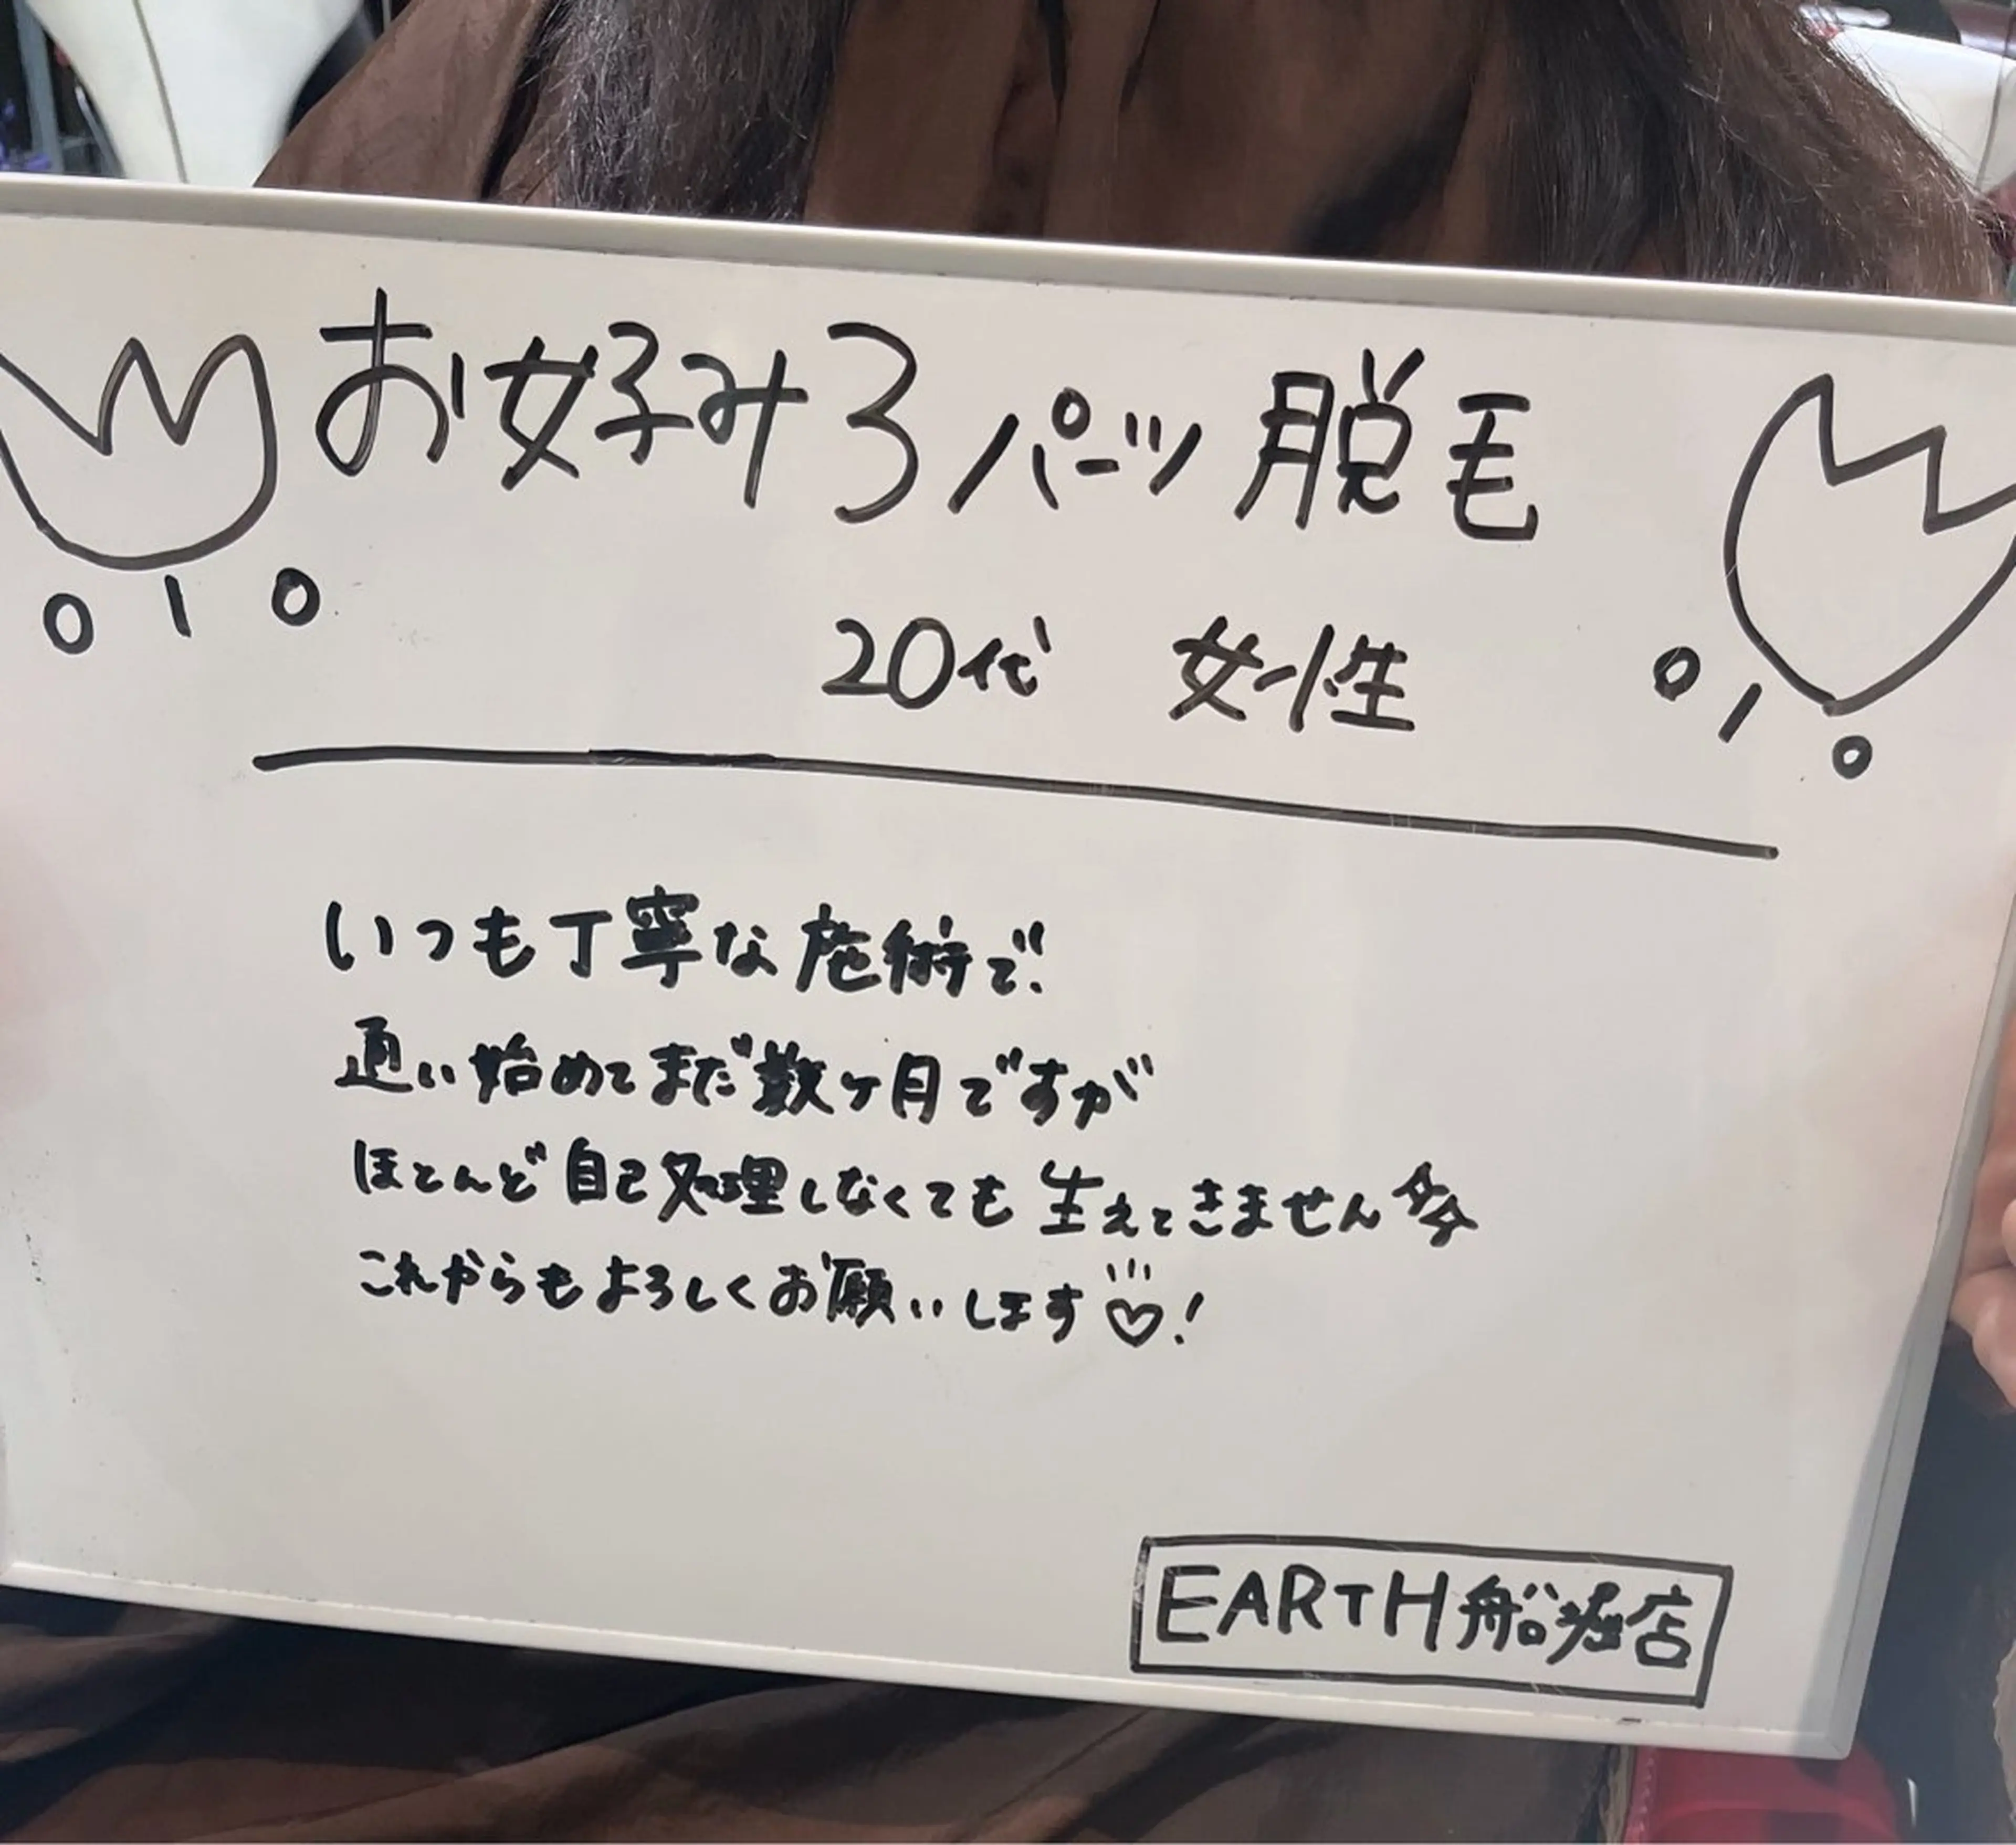 お好み3パーツ脱毛
20代 女性
いつも丁寧な施術で!
通い始めてまだ数ヶ月ですが
ほとんど自己処理しなくても生えてきません
これからもよろしくお願いします♡!
EARTH船堀店